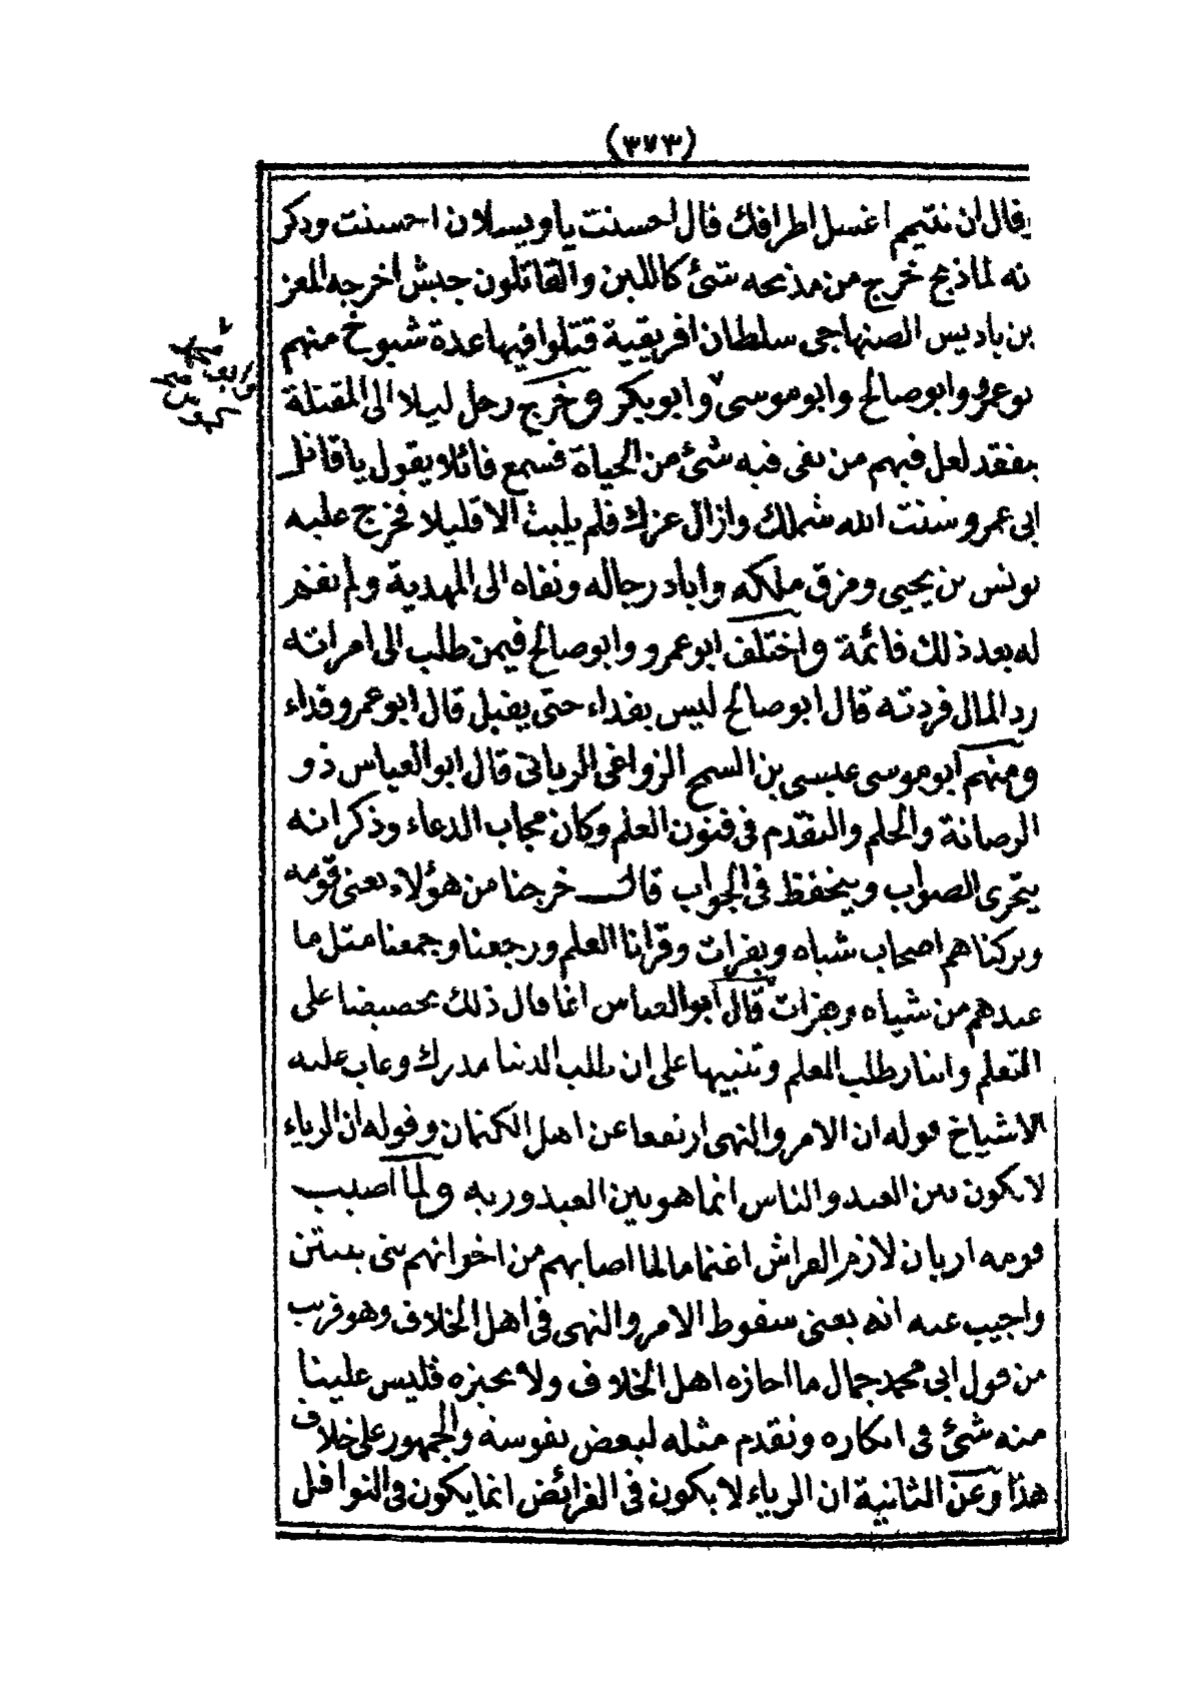 (٣٧٣)
وقال ان نتيمم اغسل اطرافك قال احسنت يا ويسلان احسنت وذكر
نه لما ذبح خرج من مذبحه شئ كاللبن والقاتلون جيش اخرجه المعز
بن باديس الصنهاجى سلطان افريقية قتلوا فيها عدة شيوخ منهم
بو عمرو وابو صالح وابو موسى وابو بكر وخرج رجل ليلا الى المقتلة
يفقد لعل فيهم من بقى فيه شئ من الحياة فسمع قائلا يقول يا قاتل
ابى عمرو شتت الله شملك وازال عزك فلم يلبث الا قليلا فخرج عليه
يونس بن يحيى ومزق ملكه واباد رجاله ونفاه الى المهدية ولم تقم
له بعد ذلك قائمة واختلف ابو عمرو وابو صالح فيمن طلب الى امراته
رد المال فردته قال ابو صالح ليس بفداء حتى يقبل قال ابو عمرو فداء
ومنهم ابو موسى عيسى بن السمح الزواغى الريانى قال ابو العباس ذو
الرصانة والحلم والتقدم فى فنون العلم وكان مجاب الدعاء وذكر انه
يتحرى الصواب ويتحفظ فى الجواب قال خرجنا من هؤلاء يعنى قومه
وتركناهم اصحاب شياه وبقرات وقرانا العلم ورجعنا وجمعنا مثل ما
عندهم من شياه وبقرات قال ابو العباس انما قال ذلك تحضيضا على
التعلم وايثار طلب العلم وتنبيها على ان طلب الدنيا مدرك وعاب عليه
الاشياخ قوله ان الامر والنهى ارتفعا عن اهل الكتمان وقوله ان الرياء
لا يكون بين العبد والناس انما هو بين العبد وربه ولما اصيب
قومه اريان لازم الفراش اغتماما لما اصابهم من اخوانهم بنى يستن
واجيب عنه انه يعنى سقوط الامر والنهى فى اهل الخلاف وهو قريب
من قول ابى محمد جمال ما اجازه اهل الخلاف ولا نجيزه فليس علينا
منه شئ فى انكاره وتقدم مثله لبعض نفوسة والجمهور على خلاف
هذا وعن الثانية ان الرياء لا يكون فى الفرائض انما يكون فى النوافل